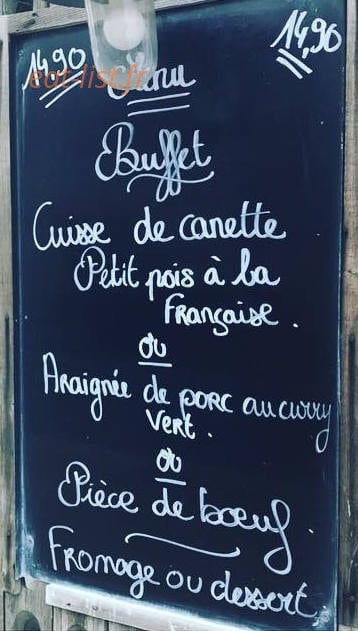 14,90 Menu 14,90
eat-list.fr
Buffet
Cuisse de canette
Petit pois à la
Française.
ou
Araignée de porc au curry
Vert.
ou
Pièce de boeuf.
Fromage ou dessert